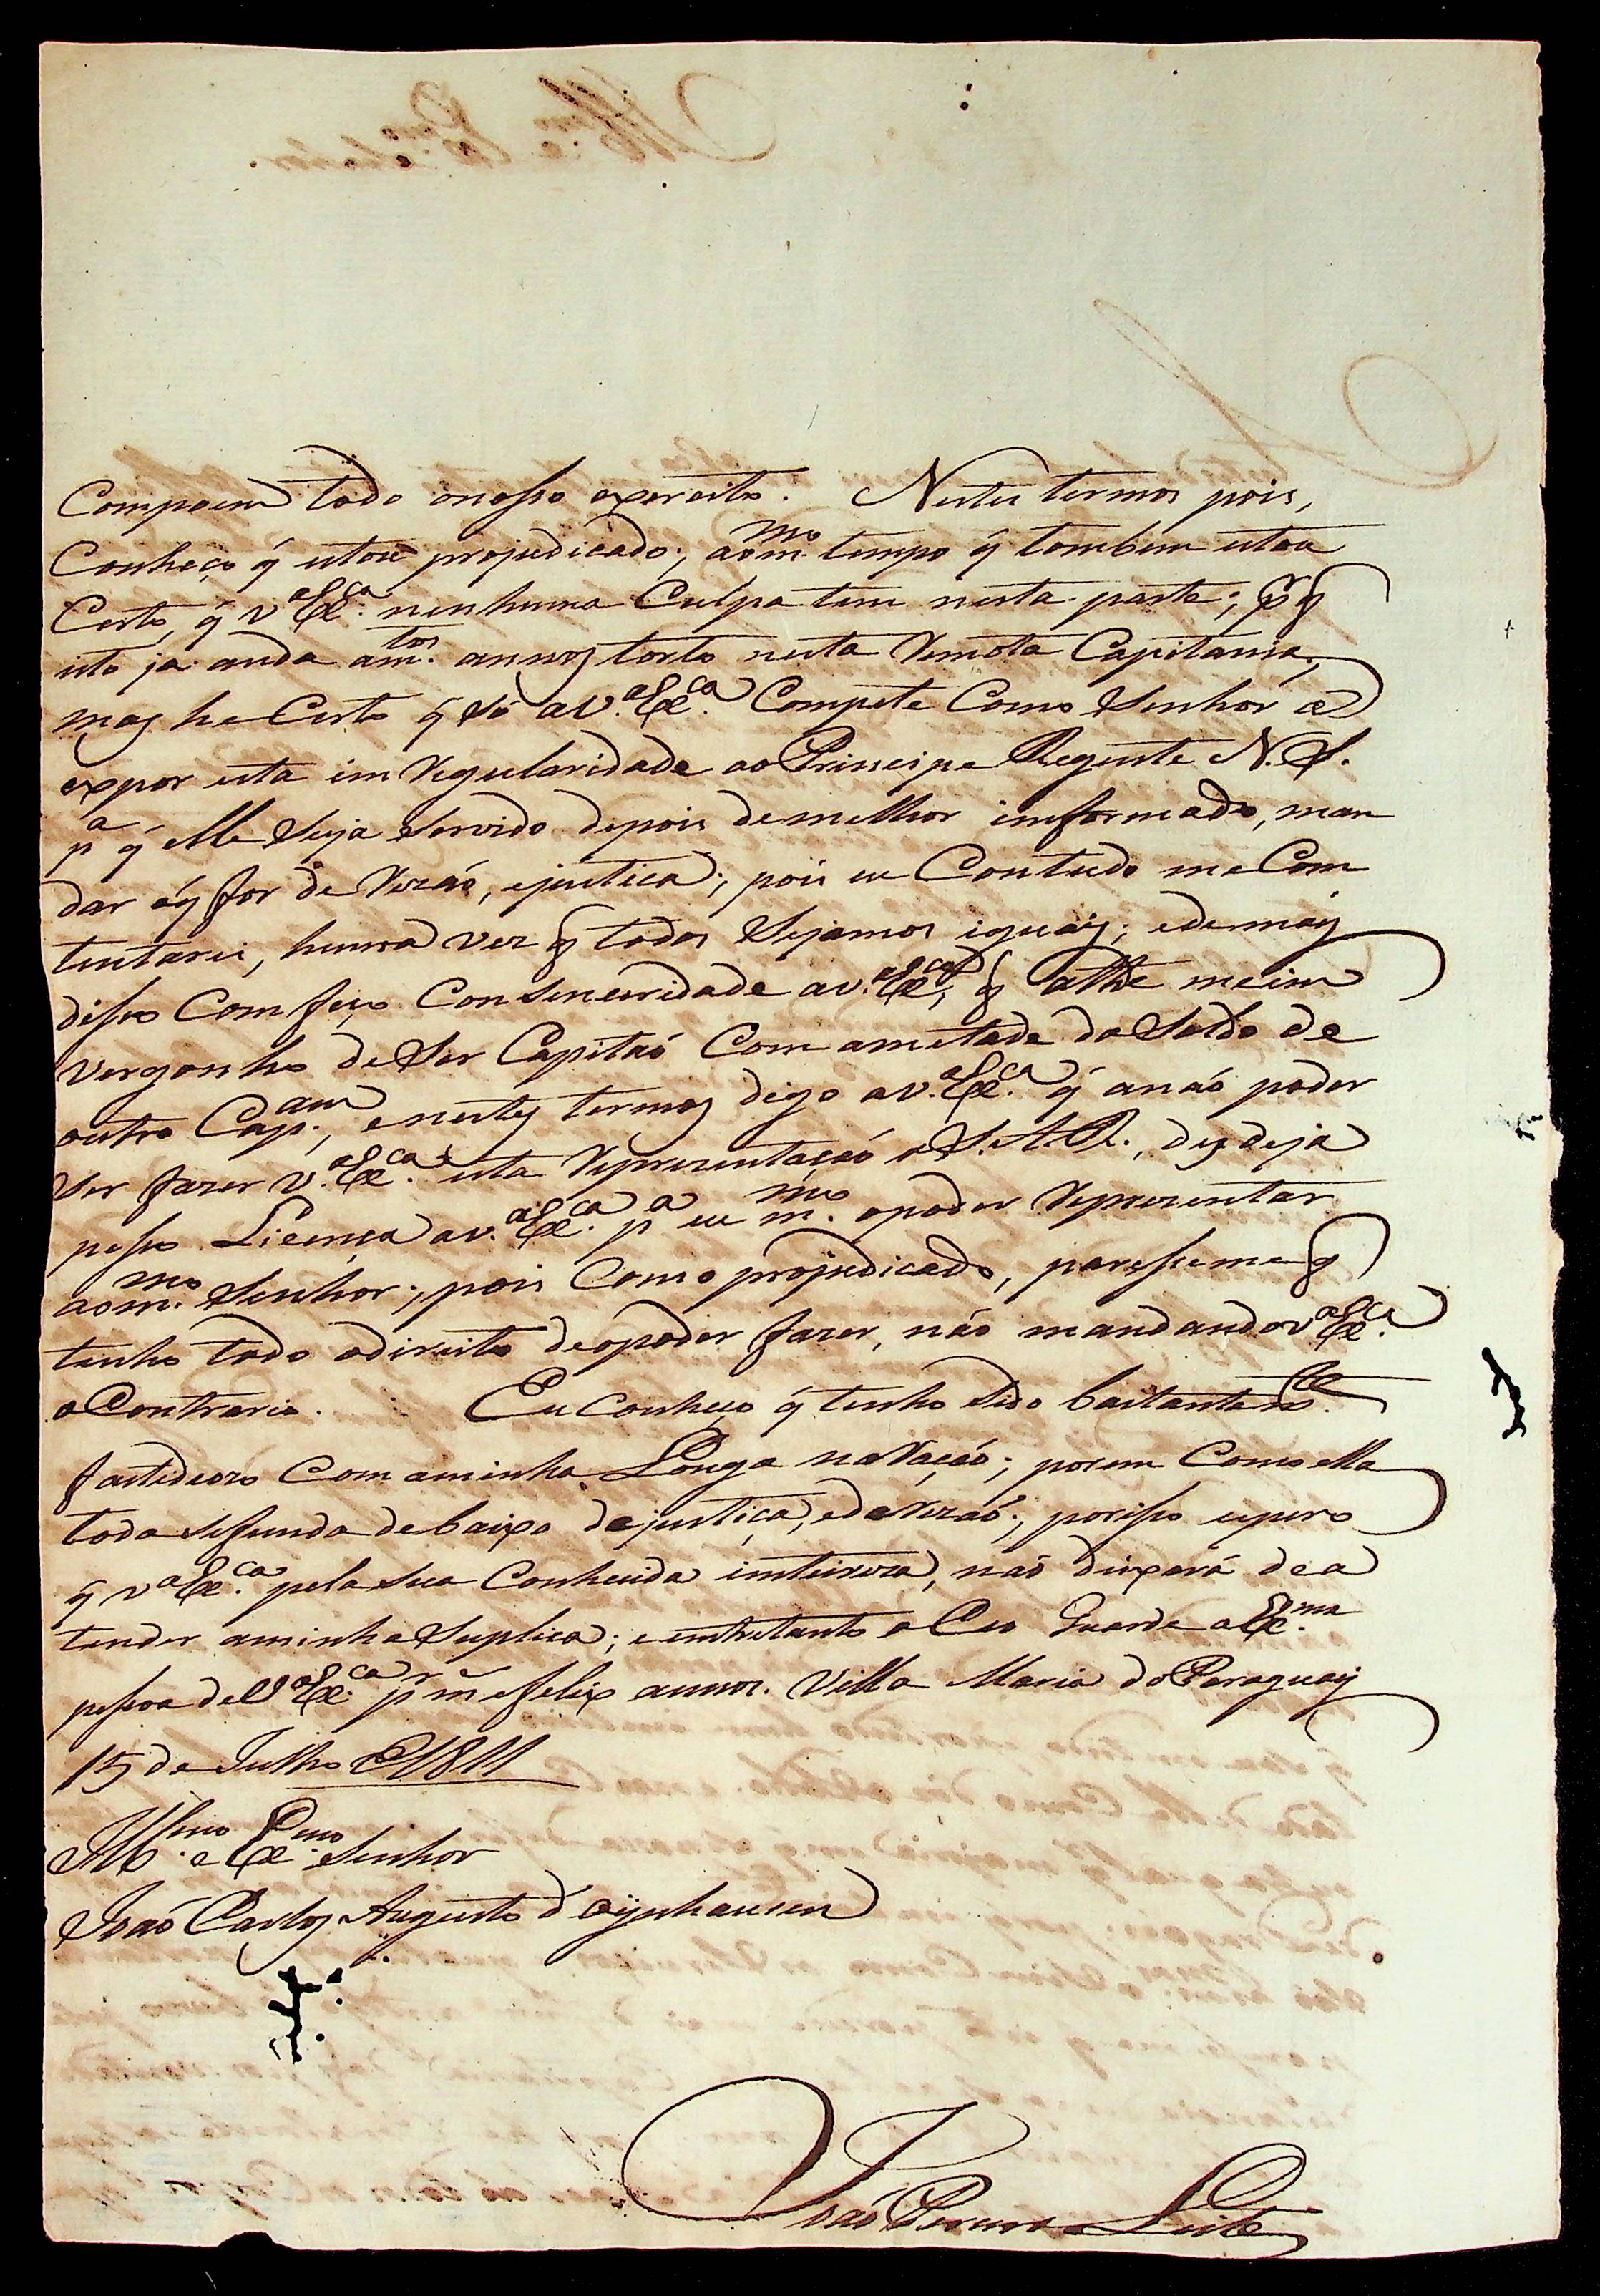 Compoem todo onosso exercito. Nestes termos pois,
Conheço q̃ estou projudicado; aom.mo tempo q̃ tambem estou
Certo, q̃ v.a Ex.ca nenhuma Culpa tem nesta parte; p.r q̃
isto ja anda am.tos annos torto nesta Remota Capitania,
mas he Certo q̃ só av.a Ex.ca Compete Como Senhor o
expor esta imRegularidade ao Principe Regente N. S.
p.a q̃ Elle Seja Servido depois demelhor imformado, man
dar oq̃ for de Rezaõ, ejustica; pois eu Contudo meCom
tentarei, huma vez q̃ todos Sejamos iguais; edemais
disso Comfeço Comsenceridade av.a Ex.ca, q̃ athe meim
vergonho deSer Capitaõ Com ametade do Soldo de
outro Cap.am, enestes termos digo av.a Ex.ca q̃ anaõ poder
Ser fazer v.a Ex.ca esta Reprezentaçaõ a S. A. R., desdeja
pesso Licença av.a Ex.ca p.a eu m.mo opoder Reprezentar
aom.mo Senhor; pois Como projudicado, paresseme q̃
tenho todo odireito deopoder fazer, não mandandov.a Ex.ca
o Contrario. Eu Conheço q̃ tenho Sido bastantem.te
fastidiozo Com aminha Longa naRaçaõ; porem Como ella
toda Sefunda debaixo dejustiça, edeRezaõ; porisso espero
q̃ v.a Ex.ca pela Sua Conhecida imteireza, naõ deixará dea
tender aminha Suplica; eentretanto o Ceo Guarde a Ex.ma
pessoa deV.a Ex.ca p.r m.s efelix annos. Villa Maria do Paraguay
15 de Julho de 1811
Ill.mo e Ex.mo Senhor
Joaõ Carlos Augusto d'Oÿnhausen
Joaõ Pereira Leite